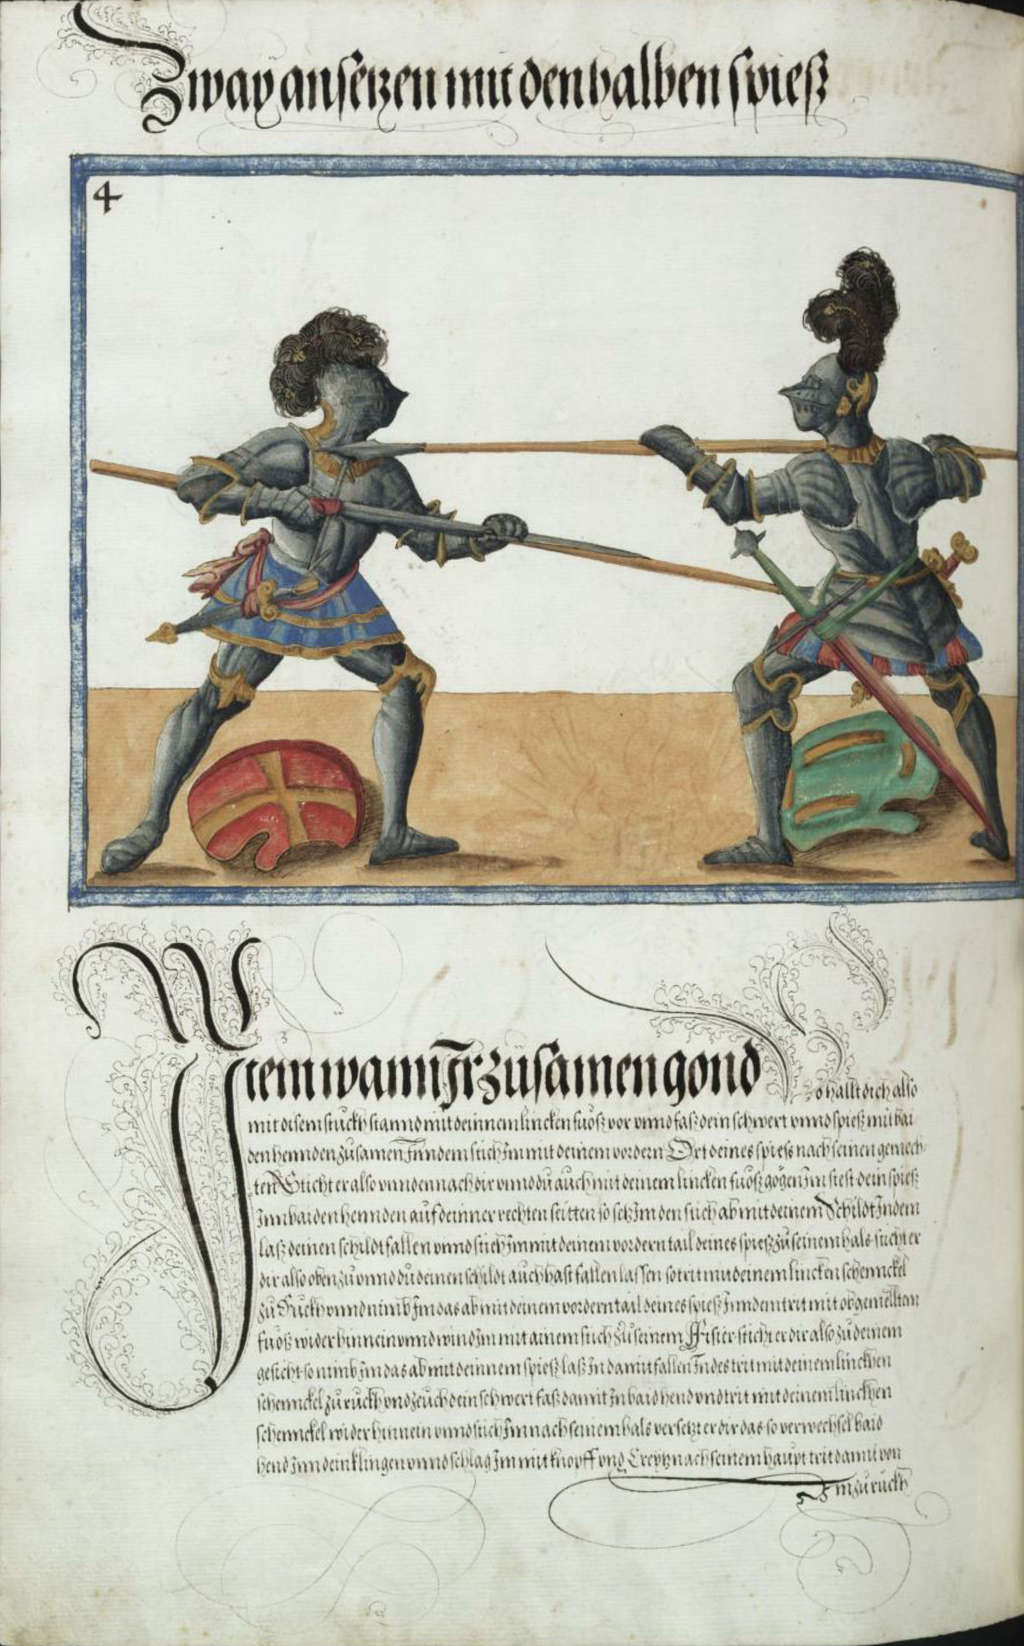 Zway ansetzen mit den halben spieß
4
Item wann Ir zusamen gond So hallt dich also
mit disem stuckh stannd mit deinnem lincken fuoß vor vnnd faß dein schwert vnnd spieß mit bai
den hennden zusamen Inndem stich Im mit deinem vordern Ort deines spiess nach seinen gemech
ten Sticht er also vnnden nach dir vnnd du auch mit deinem lincken fuoß gögen Im stest dein spieß
Inn baiden hennden auf deinner rechten seitten so setz Im den stich ab mit deinem Schildt Indem
laß deinen schildt fallen vnnd stich Im mit deinem vordern tail deines spieß zu seinem hals sticht er
dir also oben zu vnnd du deinen schildt auch hast fallen lassen so trit mit deinem lincken schennckel
zu Ruckh vnnd nimb Im das ab mit deinem vordern tail deines spieß Inndem trit mit obgemelltem
fuoß wider hinnein vnnd wind Im mit ainem stich zu seinem Fisier sticht er dir also zu deinem
gesicht so nimb Im das ab mit deinnem spieß laß In damit fallen Indes trit mit deinem linckhen
schennckel zu ruckh vnd zeuch dein schwert faß damit In baid hend vnd trit mit deinem linckhen
schennckel wider hinnein vnnd stich Im nach seinem hals versetzt er dir das so verwechsel baid
hend Inn dein klingen vnnd schlag Im mit knopff vnd Creytz nach seinem haupt trit damit von
Im zu ruckh